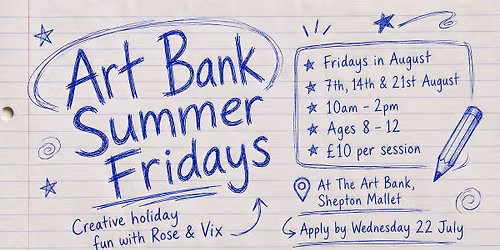 Art Bank
Summer
Fridays
Creative holiday
fun with Rose & Vix
Fridays in August
7th, 14th & 21st August
10am - 2pm
Ages 8 - 12
£10 per session
At The Art Bank,
Shepton Mallet
Apply by Wednesday 22 July